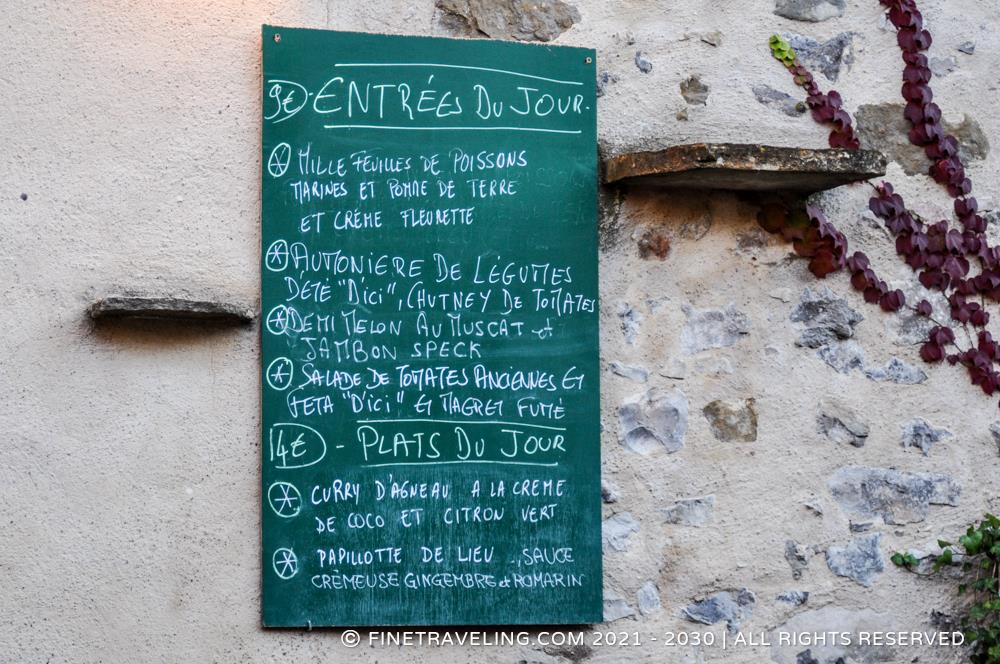 9€ - ENTRÉES DU JOUR.
MILLE FEUILLES DE POISSONS
MARINES ET POMME DE TERRE
ET CRÈME FLEURETTE
AUMONIERE DE LÉGUMES
D'ÉTÉ "D'ici", CHUTNEY DE TOMATES
DEMI MELON AU MUSCAT et
JAMBON SPECK
SALADE DE TOMATES ANCIENNES ET
FETA "D'ici" ET MAGRET FUMÉ
14€ - PLATS DU JOUR
CURRY D'AGNEAU A LA CREME
DE COCO ET CITRON VERT
PAPILLOTTE DE LIEU, SAUCE
CRÈMEUSE GINGEMBRE et ROMARIN
© FINETRAVELING.COM 2021 - 2030 | ALL RIGHTS RESERVED